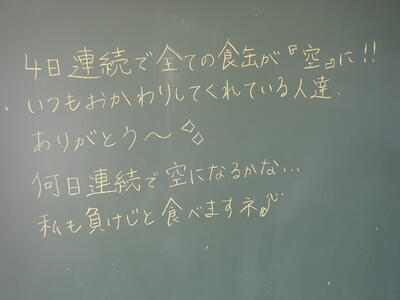 4日連続で全ての食缶が『空』に!!
いつもおかわりしてくれている人達.
ありがとう〜
何日連続で空になるかな...
私も負けじと食べますネ♪